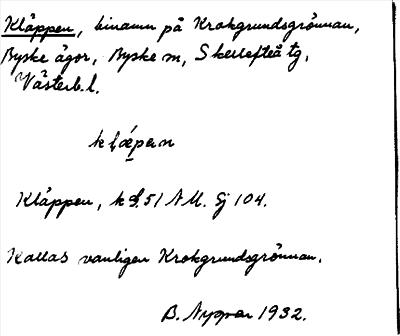 Kläppen, binamn på Krokgrundsgrönnan,
Byske ägor, Byske sn, Skellefteå tg,
Västerb. l.
Kläppen, k 51 N.M. Gj 104.
Kallas vanligen Krokgrundsgrönnan.
B. Nygren 1932.